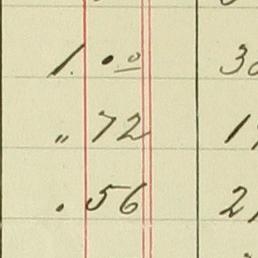 1.00 30
" 72 1
.56 2